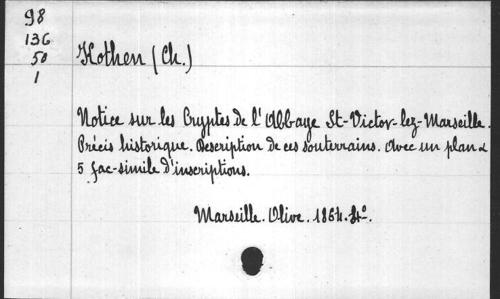 98
136
50
1
Kothen (Ch.)
Notice sur les Cryptes de l'Abbaye St-Victor-lez-Marseille.
Précis historique. Description de ces souterrains. Avec un plan &
5 fac-simile d'inscriptions.
Marseille. Olive. 1864. 4°.